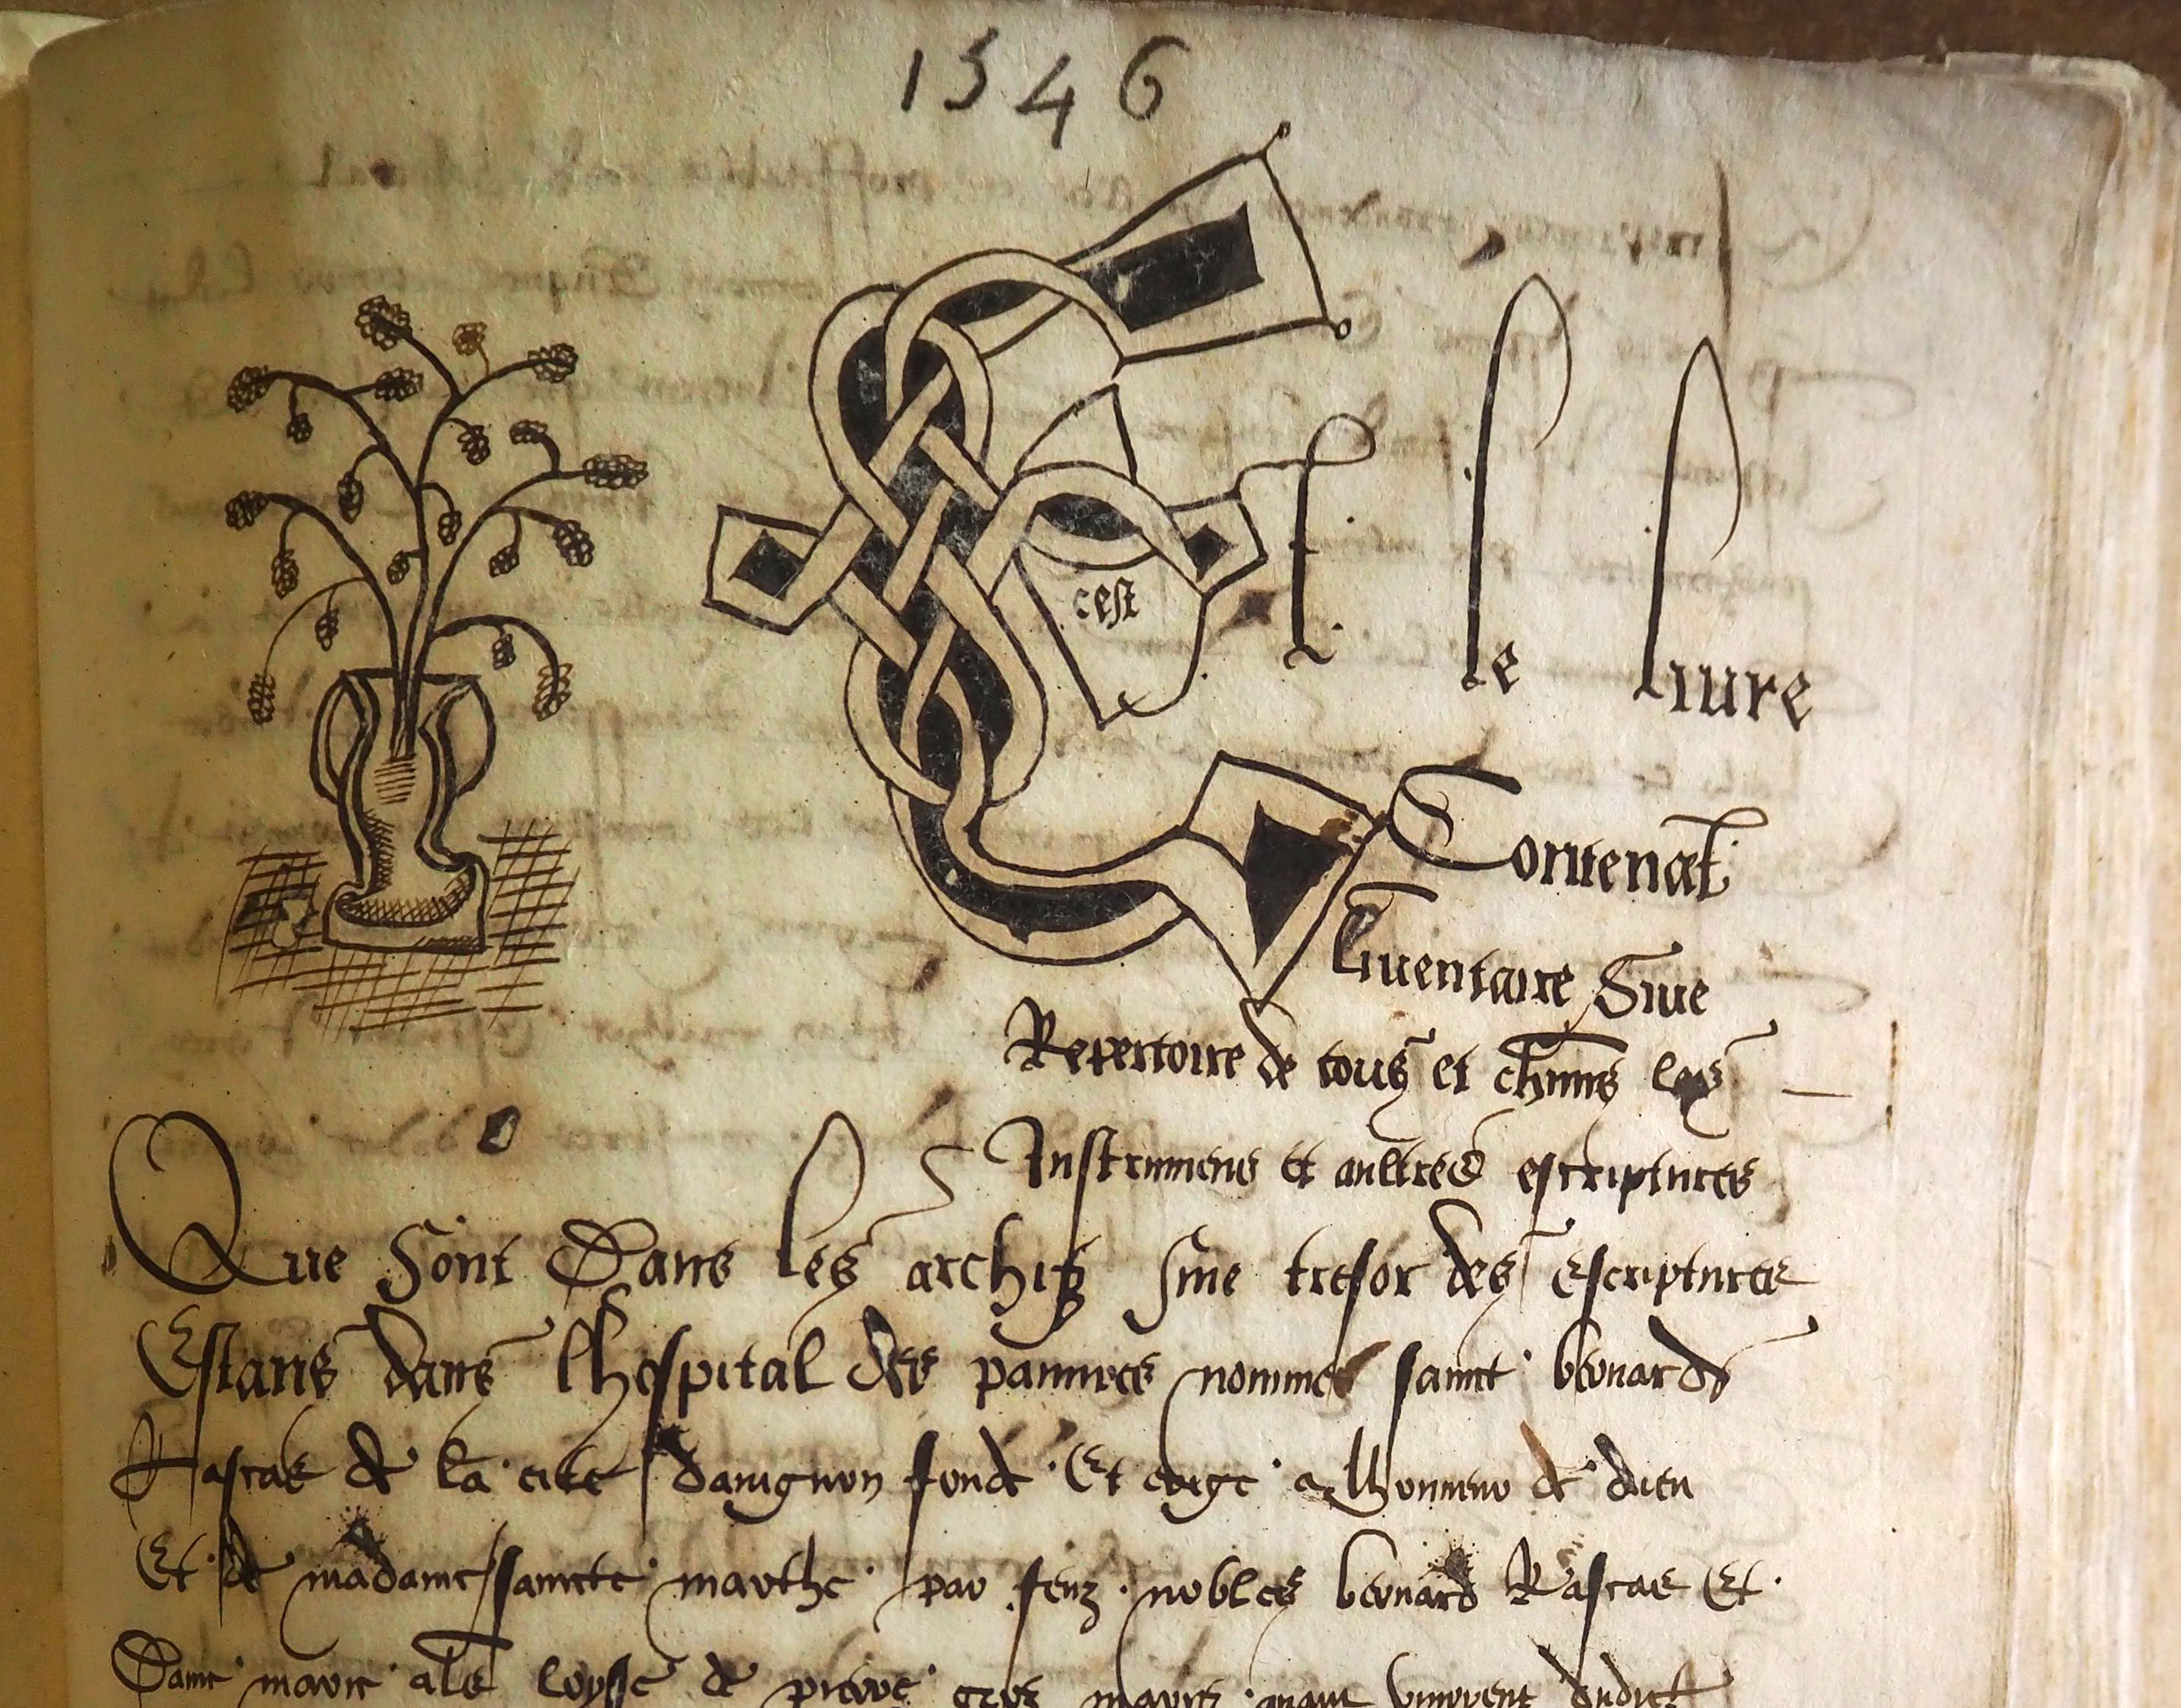 1546
cest
Est le liure
Contenāt
Liuentaire Siue
Repertoire de tous et chūns les
Instrumens et aultres escriptures
Que Sont Dans les archifz siue tresor des Escriptures
Estans dans lhospital des pauures nommes sainct bernard
Rascas de la cite dauignon fonde Et erige a lhonneur de dieu
Et de madame saincte marthe par feuz nobles bernard Rascas Et
Dame marie als loyse de pierre gros maries quant viuoient dudict